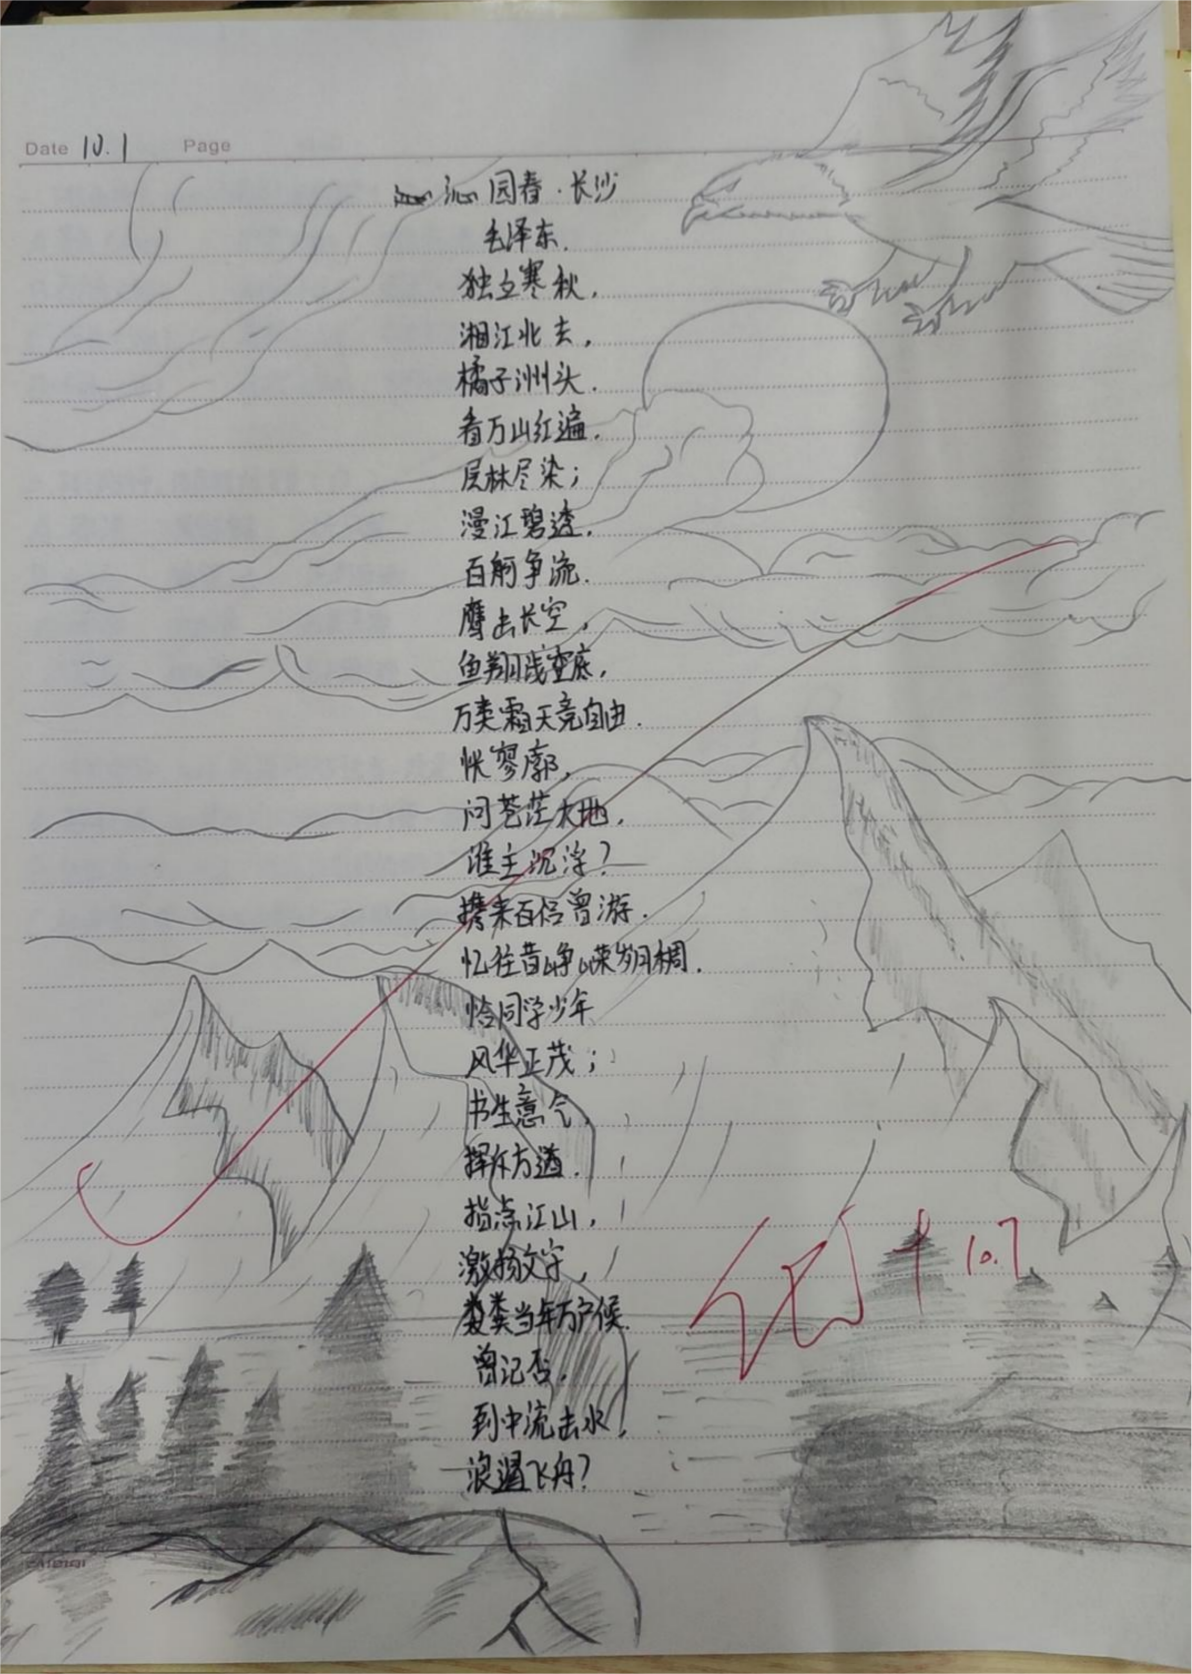 Date 10.1 Page
沁园春·长沙
毛泽东.
独立寒秋,
湘江北去,
橘子洲头.
看万山红遍,
层林尽染;
漫江碧透,
百舸争流.
鹰击长空,
鱼翔浅底,
万类霜天竞自由.
怅寥廓,
问苍茫大地,
谁主沉浮?
携来百侣曾游.
忆往昔峥嵘岁月稠.
恰同学少年
风华正茂;
书生意气,
挥斥方遒.
指点江山,
激扬文字,
粪当年万户侯.
曾记否,
到中流击水,
浪遏飞舟?
10.7